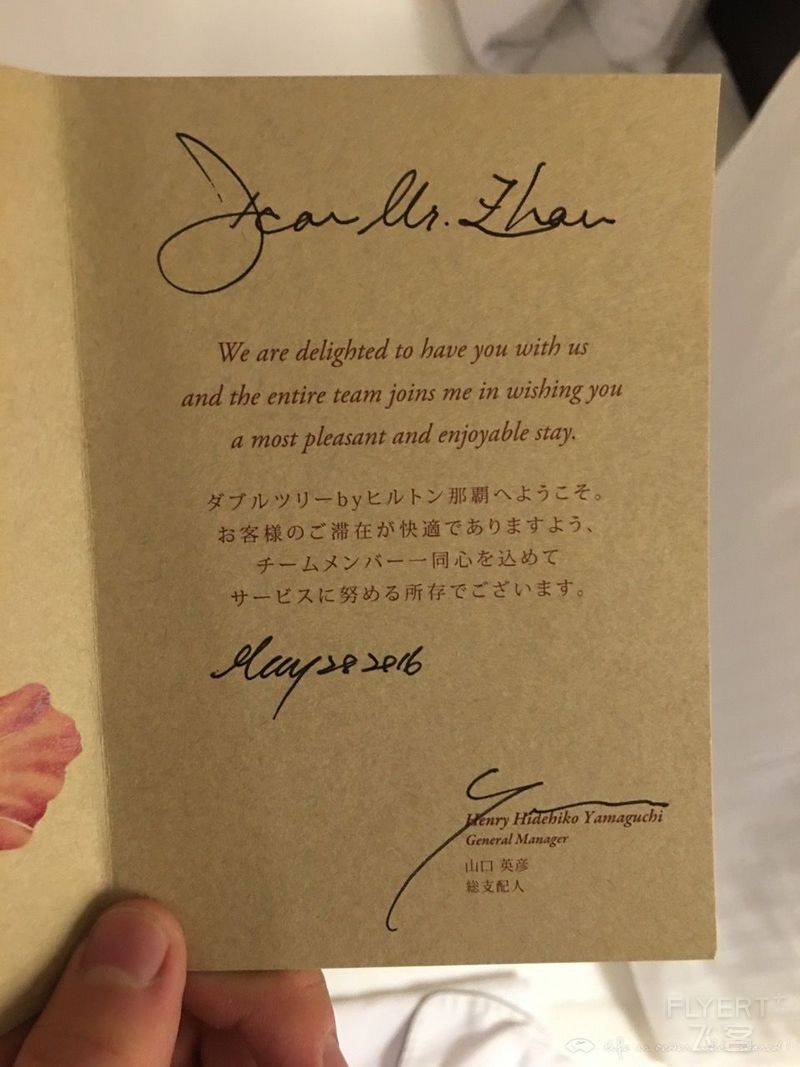 Dear Mr. Zhan
We are delighted to have you with us
and the entire team joins me in wishing you
a most pleasant and enjoyable stay.
ダブルツリーbyヒルトン那覇へようこそ。
お客様のご滞在が快適でありますよう、
チームメンバー一同心を込めて
サービスに努める所存でございます。
May 28 2016
Henry Hidehiko Yamaguchi
General Manager
山口 英彦
総支配人
FLYERT+
飞客